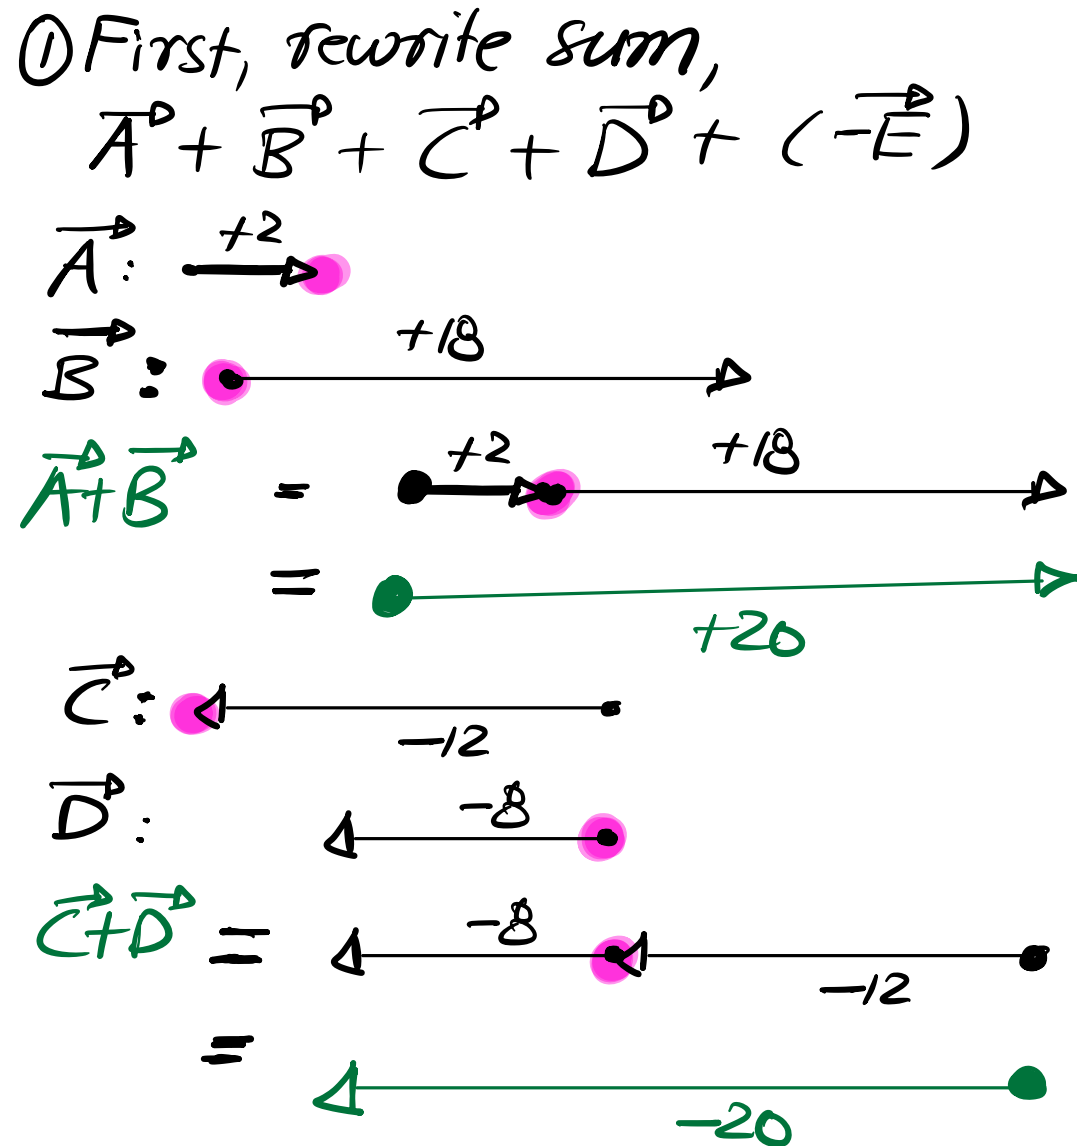 ① First, rewrite sum,
A⃗ + B⃗ + C⃗ + D⃗ + (-E⃗)
A⃗: +2
B⃗: +18
A⃗+B⃗ = +2 +18
= +20
C⃗: -12
D⃗: -8
C⃗+D⃗ = -8 -12
= -20